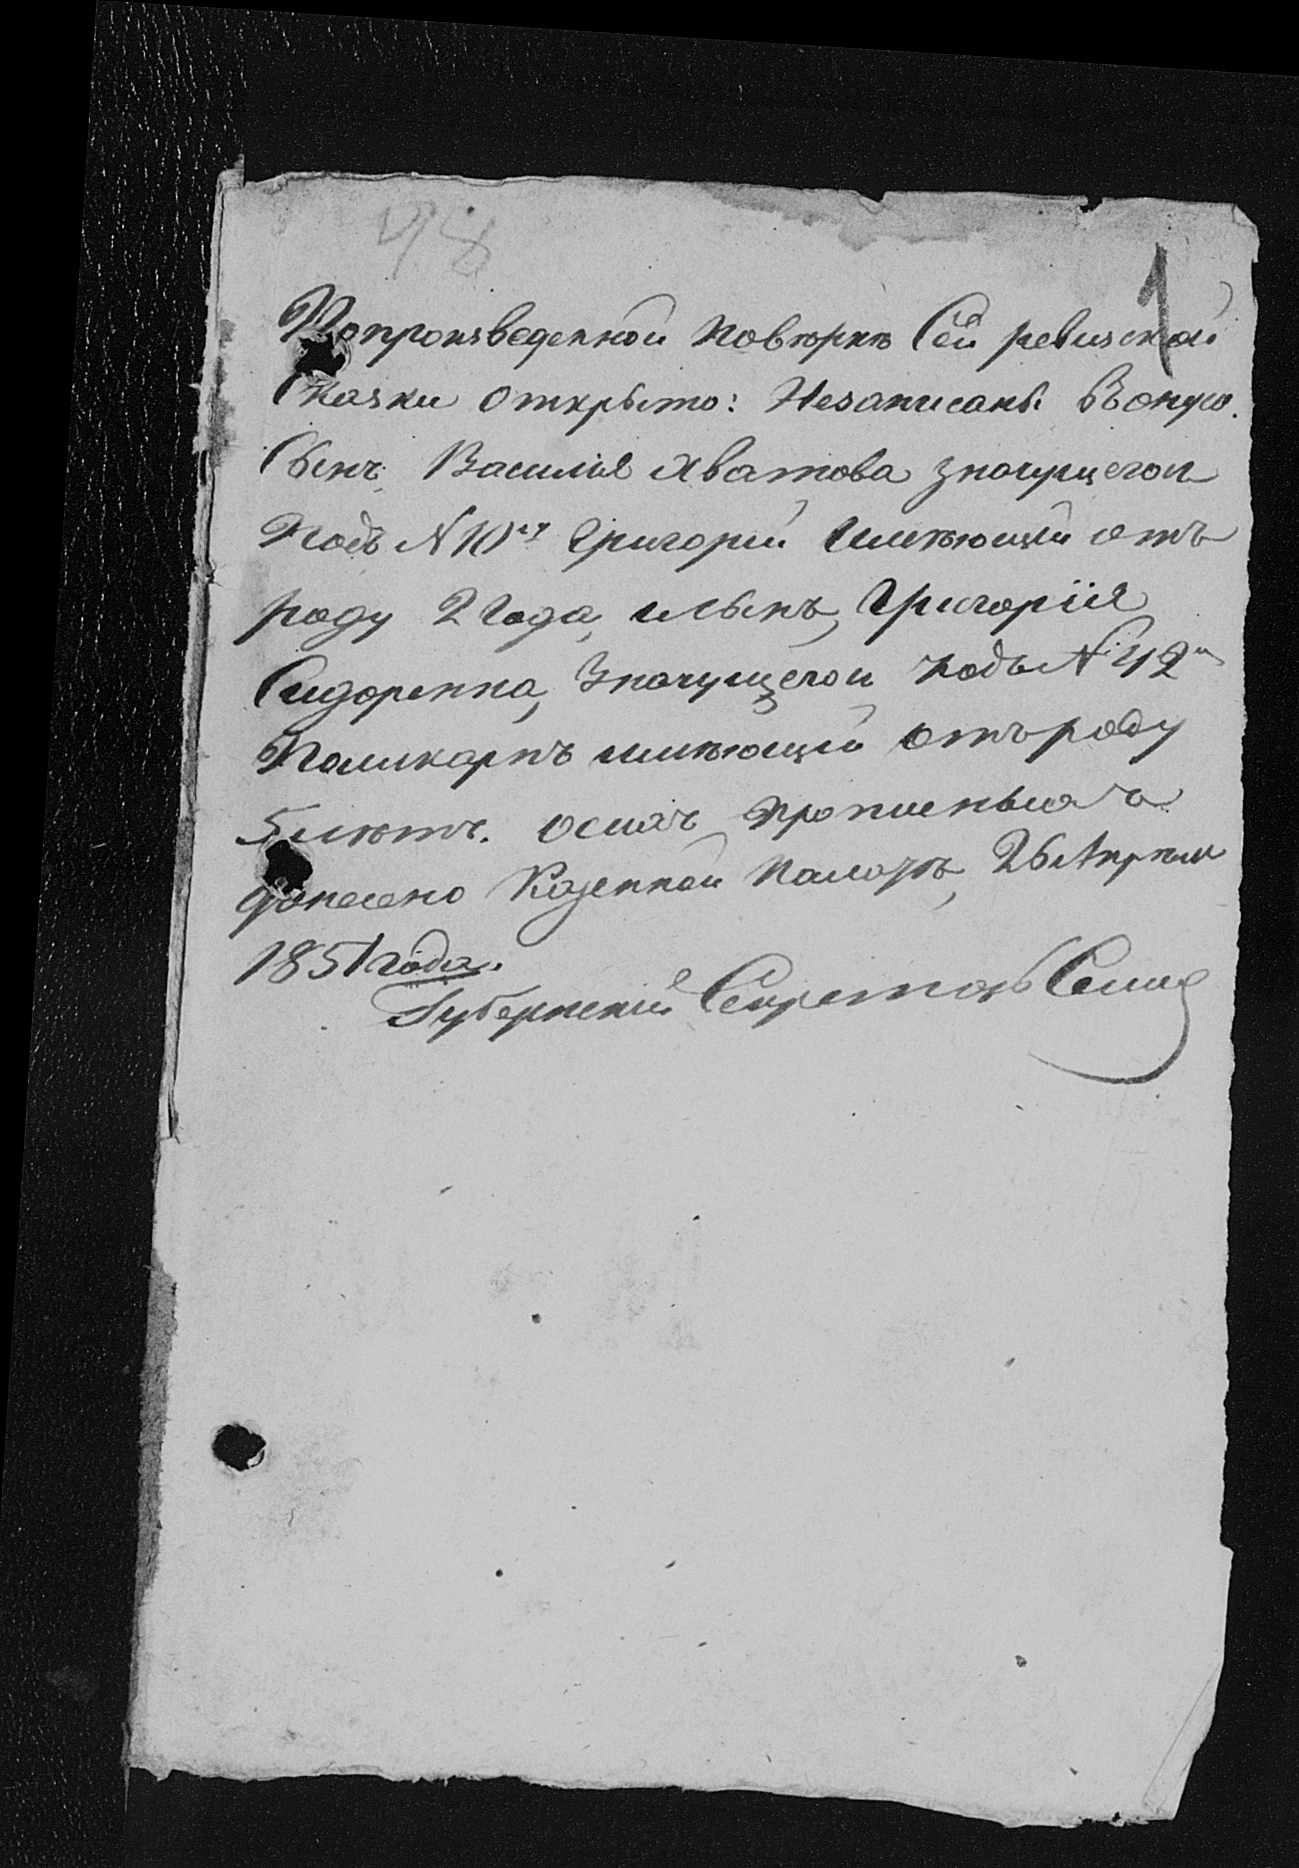 48
1
Попроизведенной повѣркѣ Сей ревизской
Сказки открыто: Незаписаны Въоную
Сынъ Василія Хватова значущегос
Подъ N 10мъ Григорій Имѣющій отъ
роду 2 года, исынъ, Григорія
Сидоренка, Значущегос подъ N 42м
Поликарпъ имѣющій отъроду
5 лѣтъ. осихъ прописныхъ
донесено Казенной Палатѣ, 26 Апрѣля
1851 года.
Губернскій Секретарь